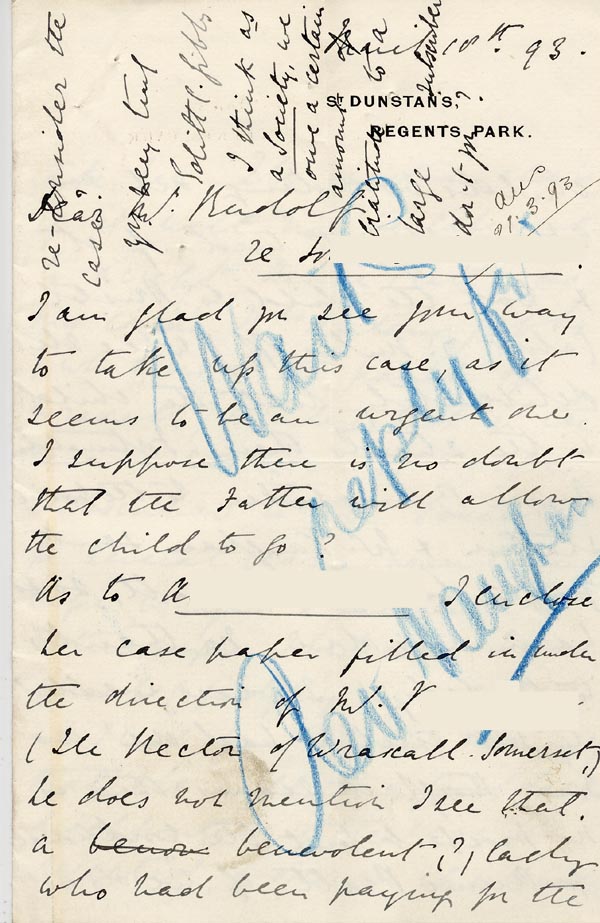 April 18th 93.
ST DUNSTANS,
REGENTS PARK.
ans
21.3.93
Dear
Mr. Rudolf
re
I am glad you see your way
to take up this case, as it
seems to be an urgent one.
I suppose there is no doubt
that the Father will allow
the child to go?
As to A
I enclose
her case paper filled in under
the direction of Mr. V
(The Rector of Wraxall. Somerset,)
he does not mention I see that.
a benevolent, (?) lady
who had been paying for the
Wait
reply fr
Rev Vaughan
consider the
re-
case?
yrs very truly
Edith C. Gibbs
I think as
a Society, we
owe a certain
amount of
gratitude to a
large subscriber
don't you?